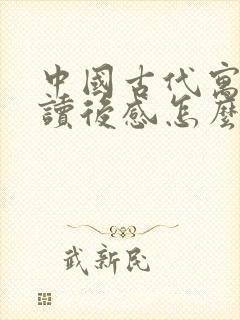 中國古代寓
讀後感怎麼
武新民